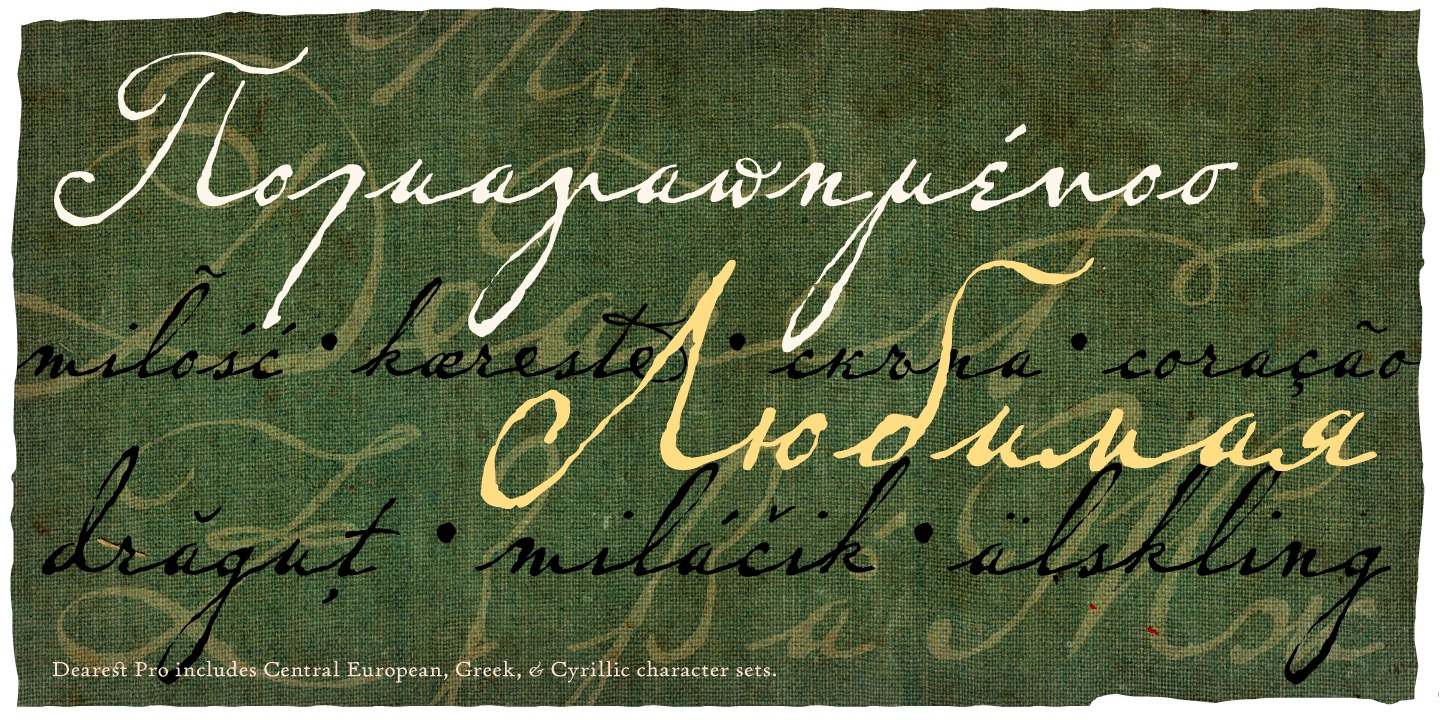 Πολυαγαπημένοσ
miłość • kæreste • скъпа • coração
Любимая
drăguț • miláčik • älskling
Dearest Pro includes Central European, Greek, & Cyrillic character sets.